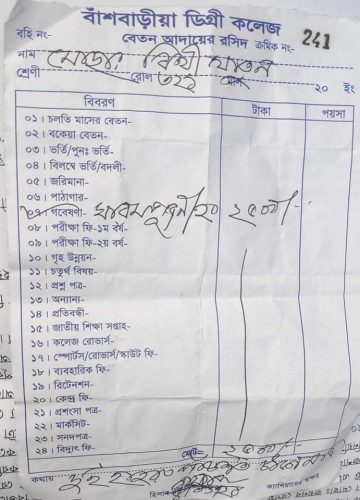 বাঁশবাড়ীয়া ডিগ্রী কলেজ
বহি নং- বেতন আদায়ের রসিদ ক্রমিক নং- 241
নাম
শ্রেণী রোল ২০ ইং
বিবরণ টাকা পয়সা
০১। চলতি মাসের বেতন-
০২। বকেয়া বেতন-
০৩। ভর্তি/পুনঃ ভর্তি-
০৪। বিলম্বে ভর্তি/বদলী-
০৫। জরিমানা-
০৬। পাঠাগার-
০৭। গবেষণা- ২৫০০/-
০৮। পরীক্ষা ফি-১ম বর্ষ-
০৯। পরীক্ষা ফি-২য় বর্ষ-
১০। গৃহ উন্নয়ন-
১১। চতুর্থ বিষয়-
১২। প্রশ্ন পত্র-
১৩। অন্যান্য-
১৪। প্রতিবন্ধী-
১৫। জাতীয় শিক্ষা সপ্তাহ-
১৬। কলেজ রোভার্স-
১৭। স্পোর্টস/রোভার্স/স্কাউট ফি-
১৮। ব্যবহারিক ফি-
১৯। রিটেনশন-
২০। কেন্দ্র ফি-
২১। প্রশংসা পত্র-
২২। মার্কসিট-
২৩। সনদপত্র-
২৪। বিদ্যুৎ ফি-
২৫০০/-
কথায়